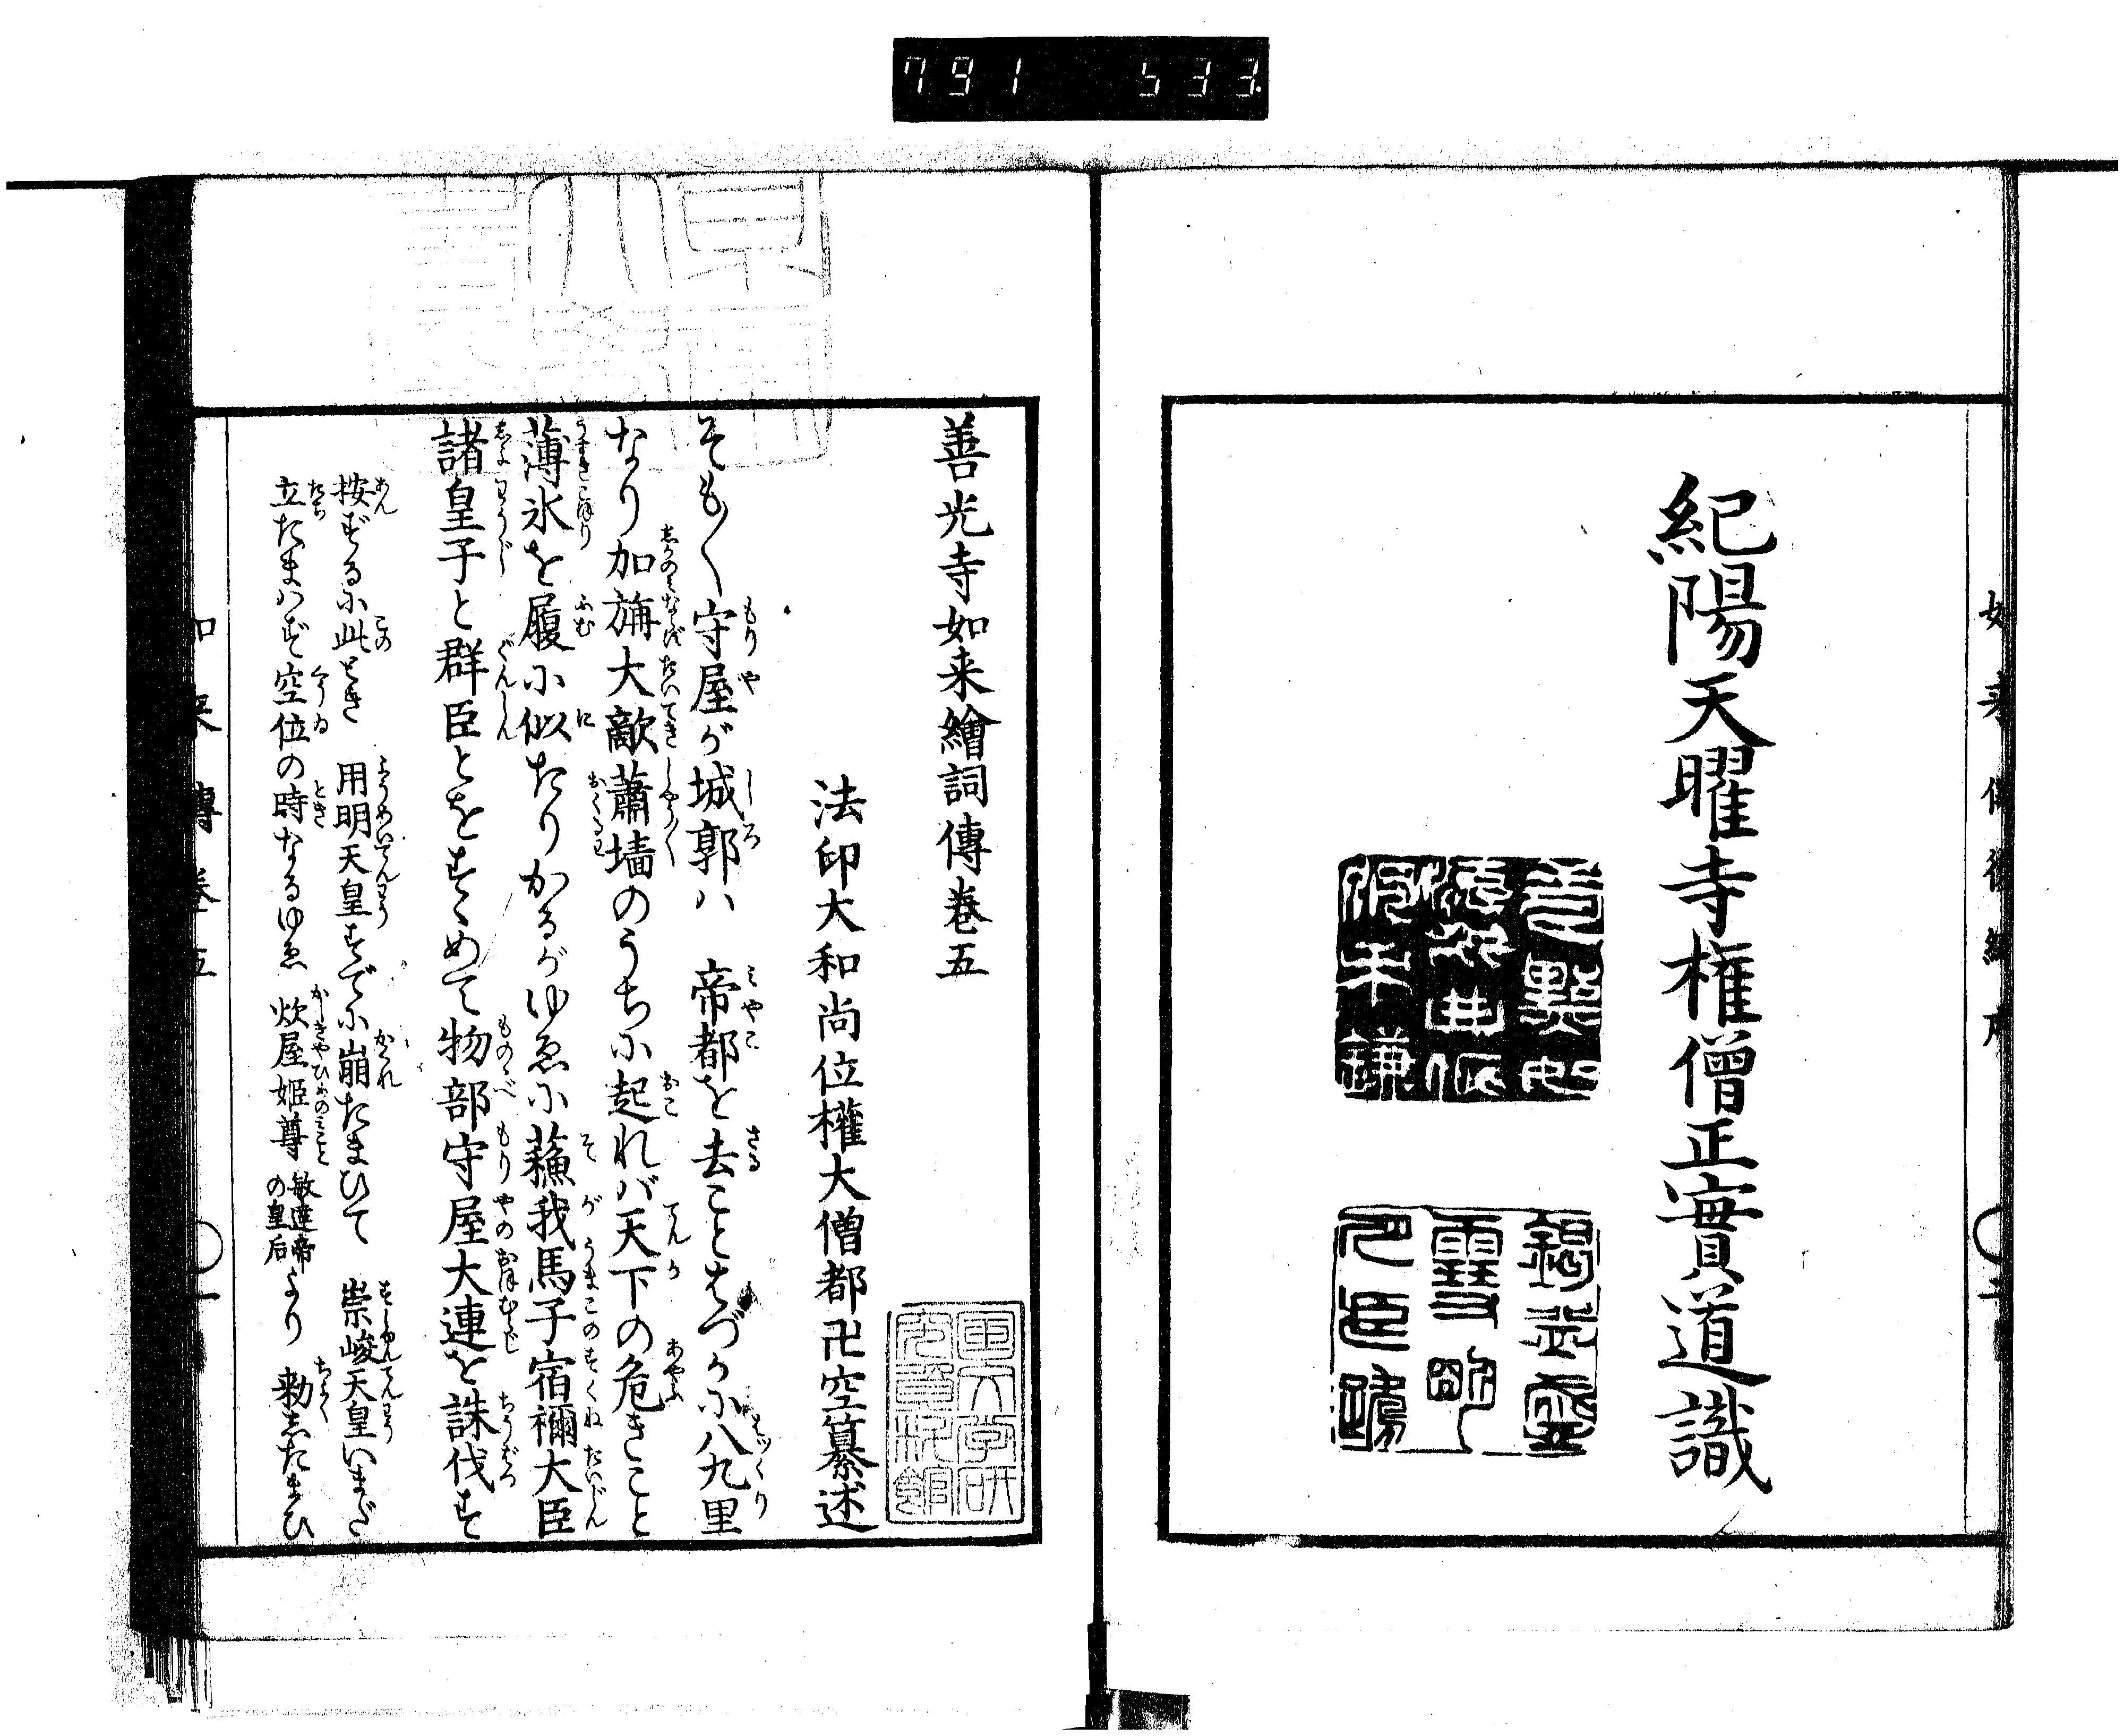 791 533.
紀陽天曜寺権僧正實道識
善光寺如来繪詞傳巻五
法印大和尚位權大僧都卍空纂述
そも〳〵守屋が城郭ハ 帝都を去ことはづかに八九里
なり加旃大敵蕭墻のうちに起れバ天下の危きこと
薄氷を履に似たりかるがゆゑに蘓我馬子宿禰大臣
諸皇子と群臣とをすゝめて物部守屋大連を誅伐す
按ずるに此とき 用明天皇すでに崩たまひて 崇峻天皇いまだ
立たまハず空位の時なるゆゑ 炊屋姫尊 敏達帝の皇后 より 勅したまひ